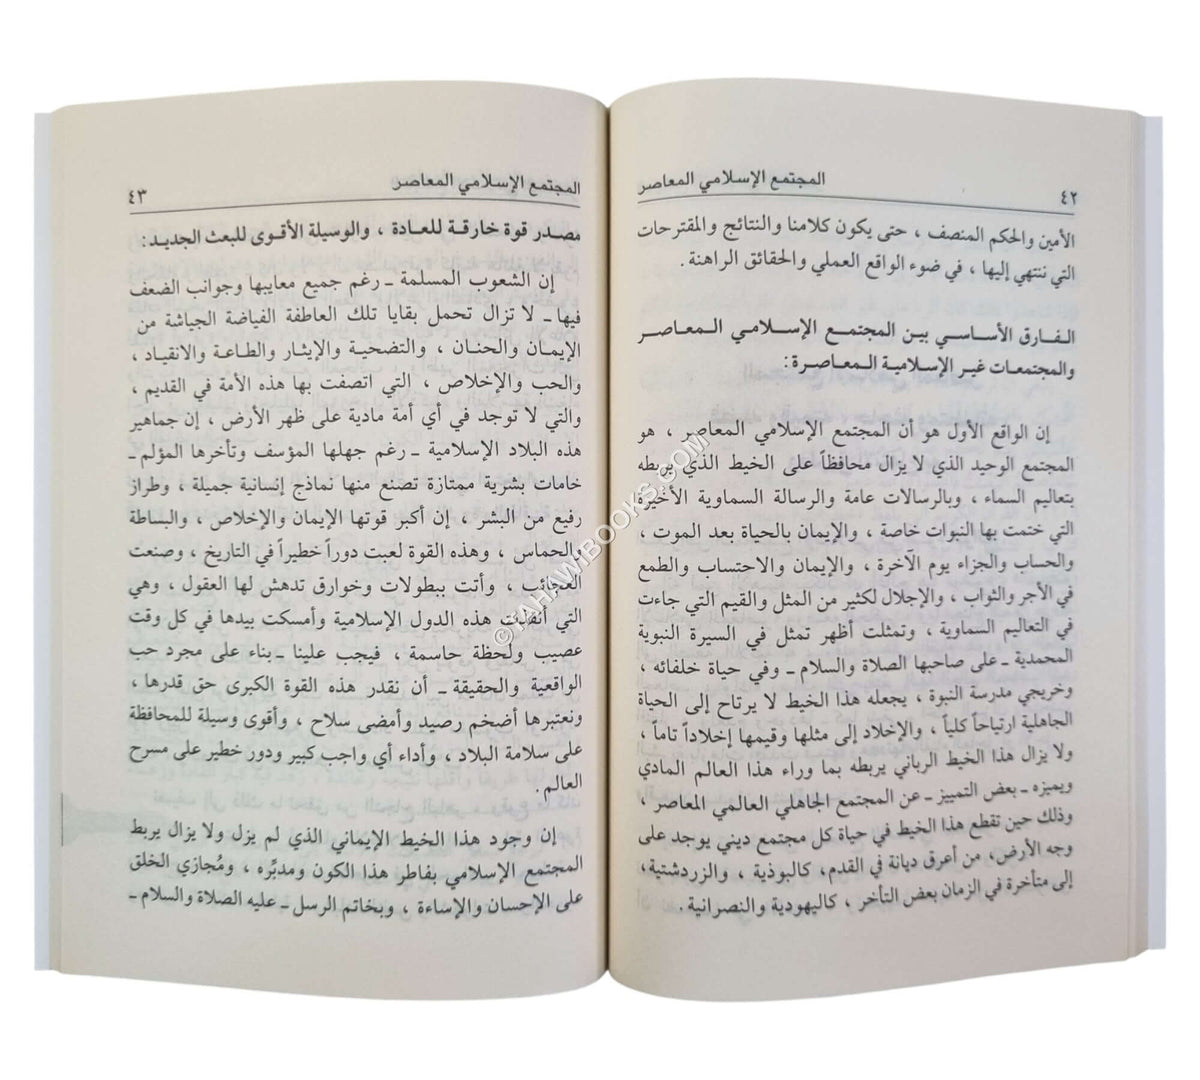 ٤٢ المجتمع الإسلامي المعاصر
الأمين والحكم المنصف ، حتى يكون كلامنا والنتائج والمقترحات
التي ننتهي إليها ، في ضوء الواقع العملي والحقائق الراهنة .
الفارق الأساسي بين المجتمع الإسلامي المعاصر
والمجتمعات غير الإسلامية المعاصرة :
إن الواقع الأول هو أن المجتمع الإسلامي المعاصر ، هو
المجتمع الوحيد الذي لا يزال محافظاً على الخيط الذي يربطه
بتعاليم السماء ، وبالرسالات عامة والرسالة السماوية الأخيرة
التي ختمت بها النبوات خاصة ، والإيمان بالحياة بعد الموت ،
والحساب والجزاء يوم الآخرة ، والإيمان والاحتساب والطمع
في الأجر والثواب ، والإجلال لكثير من المثل والقيم التي جاءت
في التعاليم السماوية ، وتمثلت أظهر تمثل في السيرة النبوية
المحمدية ـ على صاحبها الصلاة والسلام ـ وفي حياة خلفائه ،
وخريجي مدرسة النبوة ، يجعله هذا الخيط لا يرتاح إلى الحياة
الجاهلية ارتياحاً كلياً ، والإخلاد إلى مثلها وقيمها إخلاداً تاماً ،
ولا يزال هذا الخيط الرباني يربطه بما وراء هذا العالم المادي
ويميزه ـ بعض التمييز ـ عن المجتمع الجاهلي العالمي المعاصر ،
وذلك حين تقطع هذا الخيط في حياة كل مجتمع ديني يوجد على
وجه الأرض، من أعرق ديانة في القدم، كالبوذية ، والزردشتية،
إلى متأخرة في الزمان بعض التأخر ، كاليهودية والنصرانية .
المجتمع الإسلامي المعاصر ٤٣
مصدر قوة خارقة للعادة ، والوسيلة الأقوى للبعث الجديد :
إن الشعوب المسلمة ـ رغم جميع معايبها وجوانب الضعف
فيها ـ لا تزال تحمل بقايا تلك العاطفة الفياضة الجياشة من
الإيمان والحنان ، والتضحية والإيثار والطاعة والانقياد ،
والحب والإخلاص ، التي اتصفت بها هذه الأمة في القديم ،
والتي لا توجد في أي أمة مادية على ظهر الأرض ، إن جماهير
هذه البلاد الإسلامية ـ رغم جهلها المؤسف وتأخرها المؤلم ـ
خامات بشرية ممتازة تصنع منها نماذج إنسانية جميلة ، وطراز
رفيع من البشر ، إن أكبر قوتها الإيمان والإخلاص ، والبساطة
والحماس ، وهذه القوة لعبت دوراً خطيراً في التاريخ ، وصنعت
العجائب ، وأتت ببطولات وخوارق تدهش لها العقول ، وهي
التي أنقذت هذه الدول الإسلامية وأمسكت بيدها في كل وقت
عصيب ولحظة حاسمة ، فيجب علينا ـ بناء على مجرد حب
الواقعية والحقيقة ـ أن نقدر هذه القوة الكبرى حق قدرها ،
ونعتبرها أضخم رصيد وأمضى سلاح ، وأقوى وسيلة للمحافظة
على سلامة البلاد ، وأداء أي واجب كبير ودور خطير على مسرح
العالم .
إن وجود هذا الخيط الإيماني الذي لم يزل ولا يزال يربط
المجتمع الإسلامي بفاطر هذا الكون ومدبِّره ، ومُجازي الخلق
على الإحسان والإساءة ، وبخاتم الرسل ـ عليه الصلاة والسلام ـ
©TAHAWIBOOKS.COM